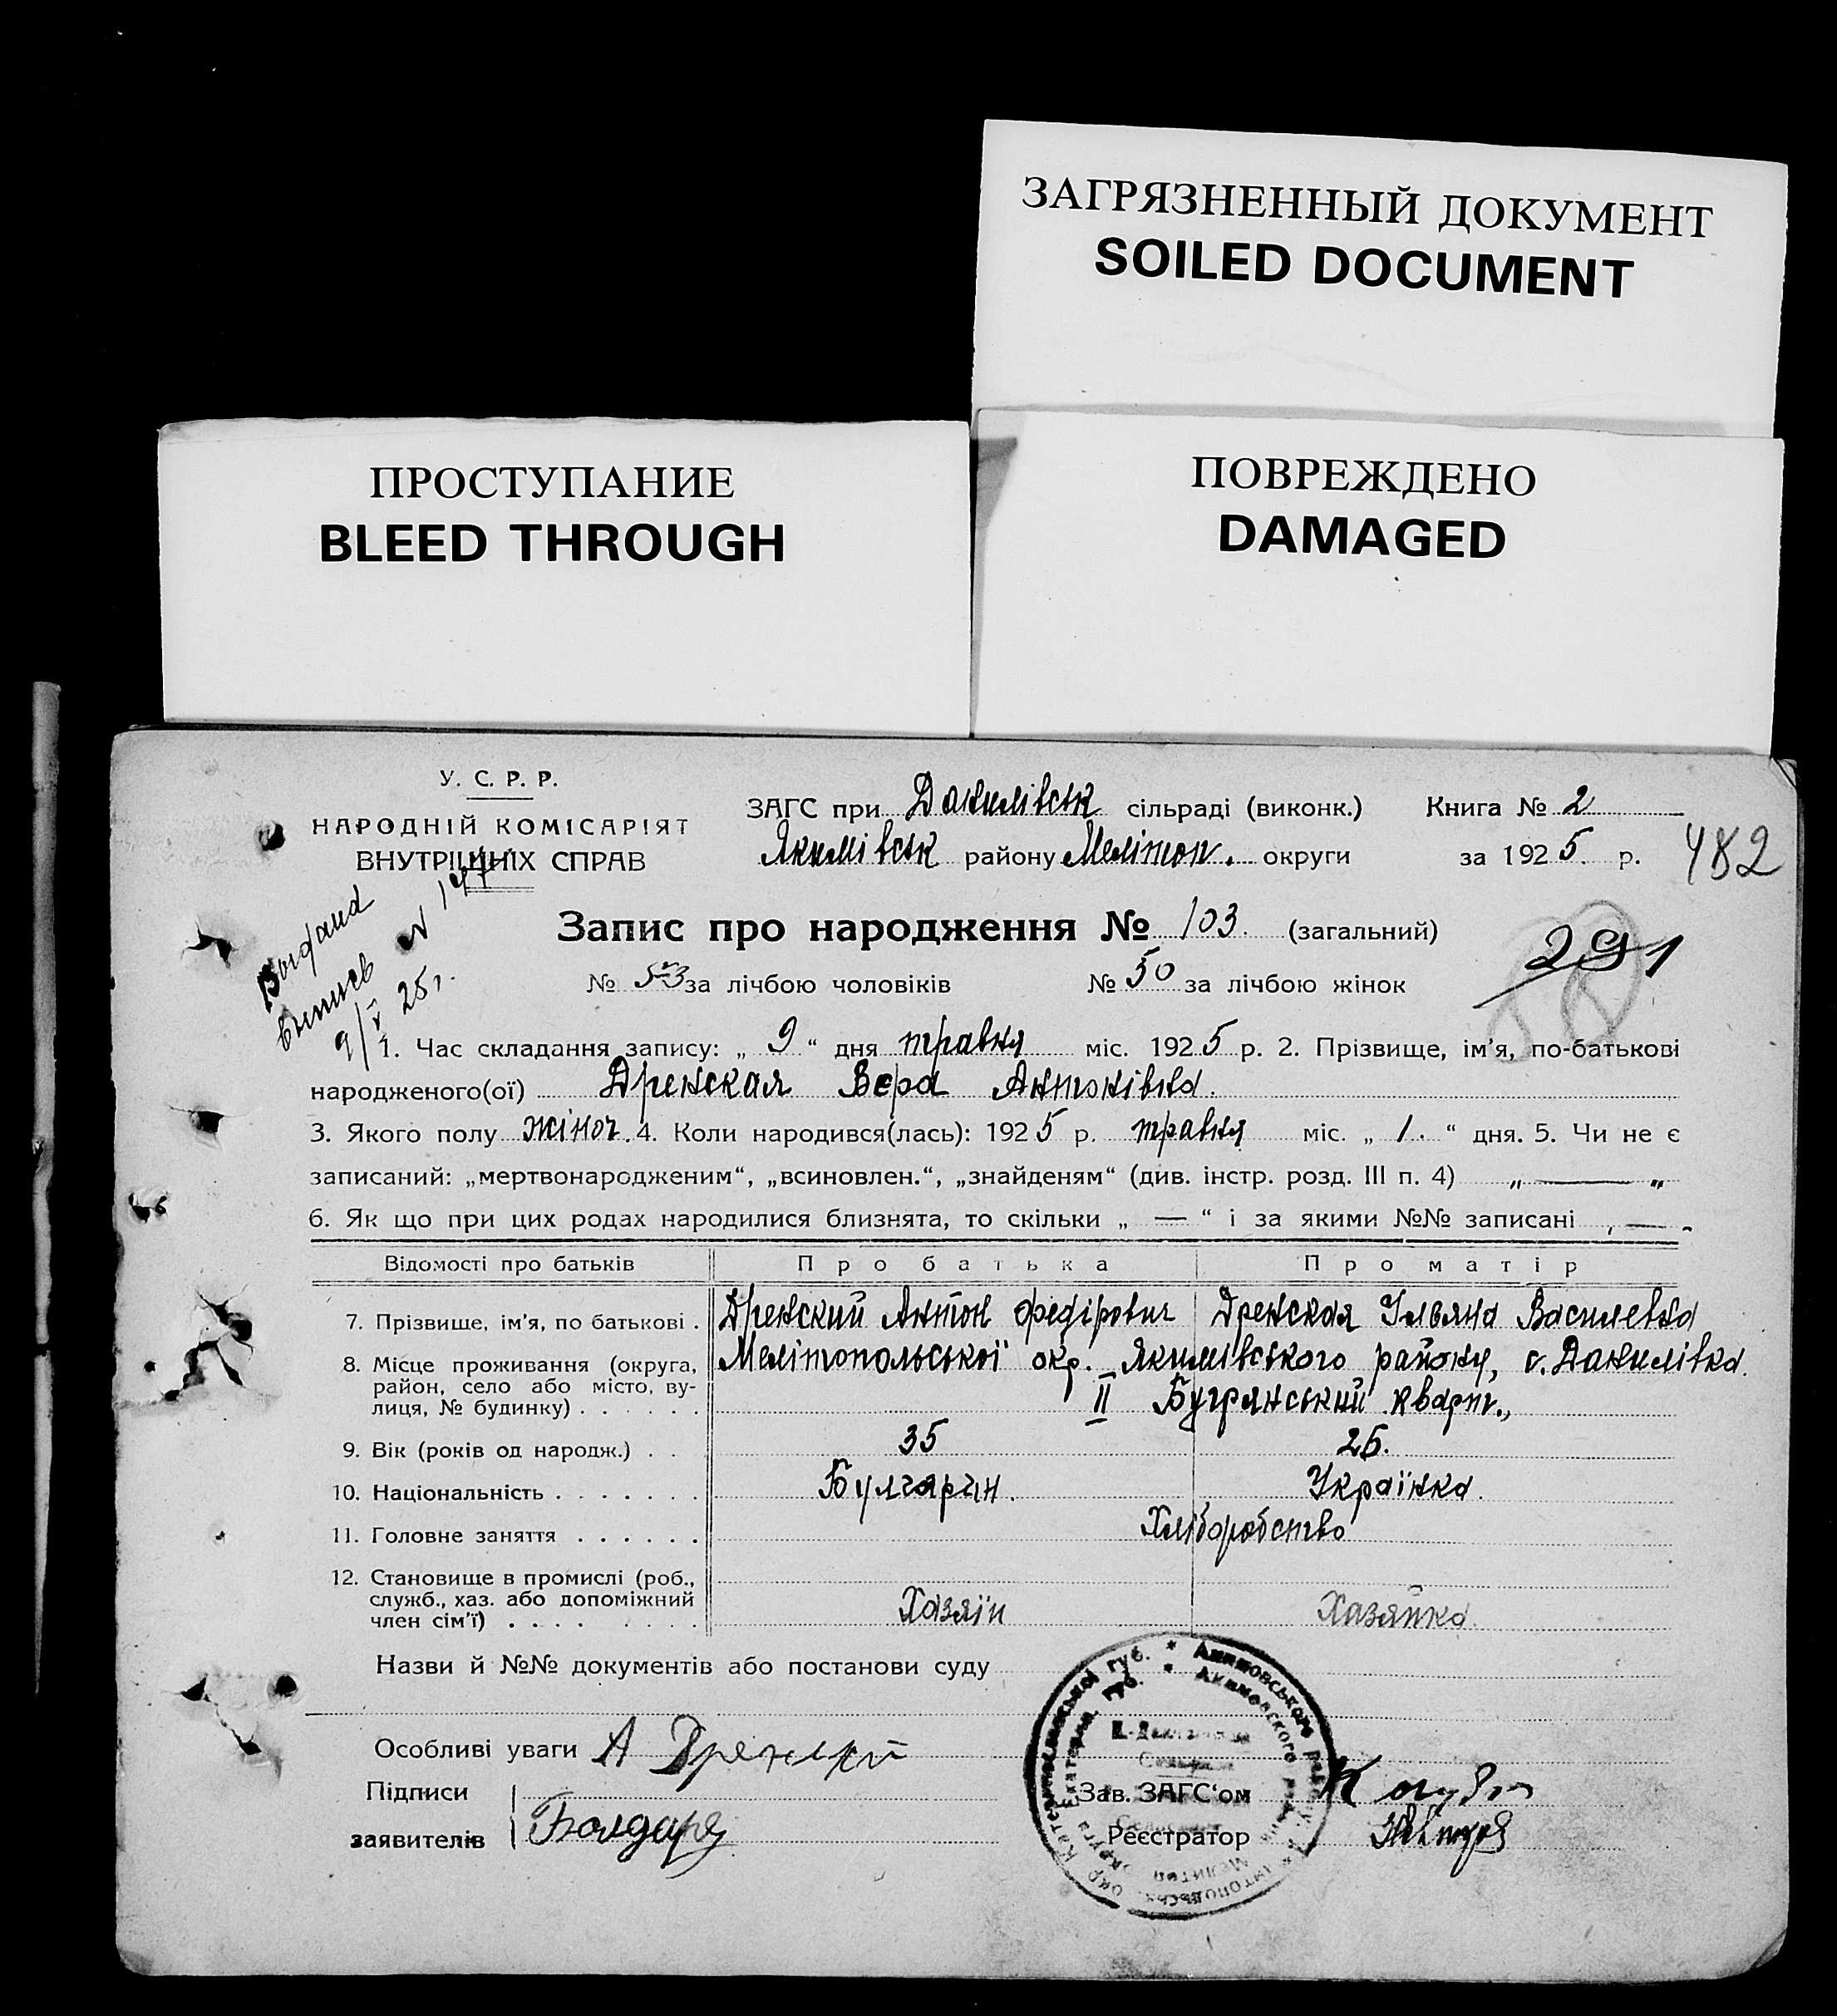 ЗАГРЯЗНЕННЫЙ ДОКУМЕНТ
SOILED DOCUMENT
ПРОСТУПАНИЕ
BLEED THROUGH
ПОВРЕЖДЕНО
DAMAGED
У. С. Р. Р.
НАРОДНІЙ КОМІСАРІЯТ
ВНУТРІШНІХ СПРАВ
ЗАГС при Данилівськ сільраді (виконк.) Книга № 2
Якимівськ району Мелітоп. округи за 1925. р.
482
Видана
выпись №
9/V 25 г.
Запис про народження № 103. (загальний)
291
№ 53 за лічбою чоловіків № 50 за лічбою жінок
1. Час складання запису: „ 9 “ дня травня міс. 1925 р. 2. Прізвище, ім'я, по-батькові
народженого(ої) Дренская Вера Антонівна.
3. Якого полу жіноч. 4. Коли народився(лась): 1925 р. травня міс. „ 1. “ дня. 5. Чи не є
записаний: „мертвонародженим“, „всиновлен.“, „знайденям“ (див. інстр. розд. III п. 4) „ — „
6. Як що при цих родах народилися близнята, то скільки „ — “ і за якими №№ записані , —
Відомості про батьків Про батька Про матір
7. Прізвище, ім'я, по батькові . Дренский Антон Федірович Дренская Ульяна Василевна
8. Місце проживання (округа, Мелітопольської окр. Якимівського району, с. Данилівка.
район, село або місто, ву-
лиця, № будинку) . . . . . . II Бугрянський кварт.,
9. Вік (років од народж.) . . 35 25.
10. Національність . . . . . . . Булгарин. Українка.
11. Головне заняття . . . . . . Хліборобство
12. Становище в промислі (роб.,
служб., хаз. або допоміжний
член сім'ї) . . . . . . . . Хазяїн Хазяйка.
Назви й №№ документів або постанови суду
Особливі уваги А Дренский
Підписи
заявителів Болдарь
Зав. ЗАГС‘ом
Реєстратор
Катеринославської губ. * Акимовського
Екатерин. губ. * Акимовского